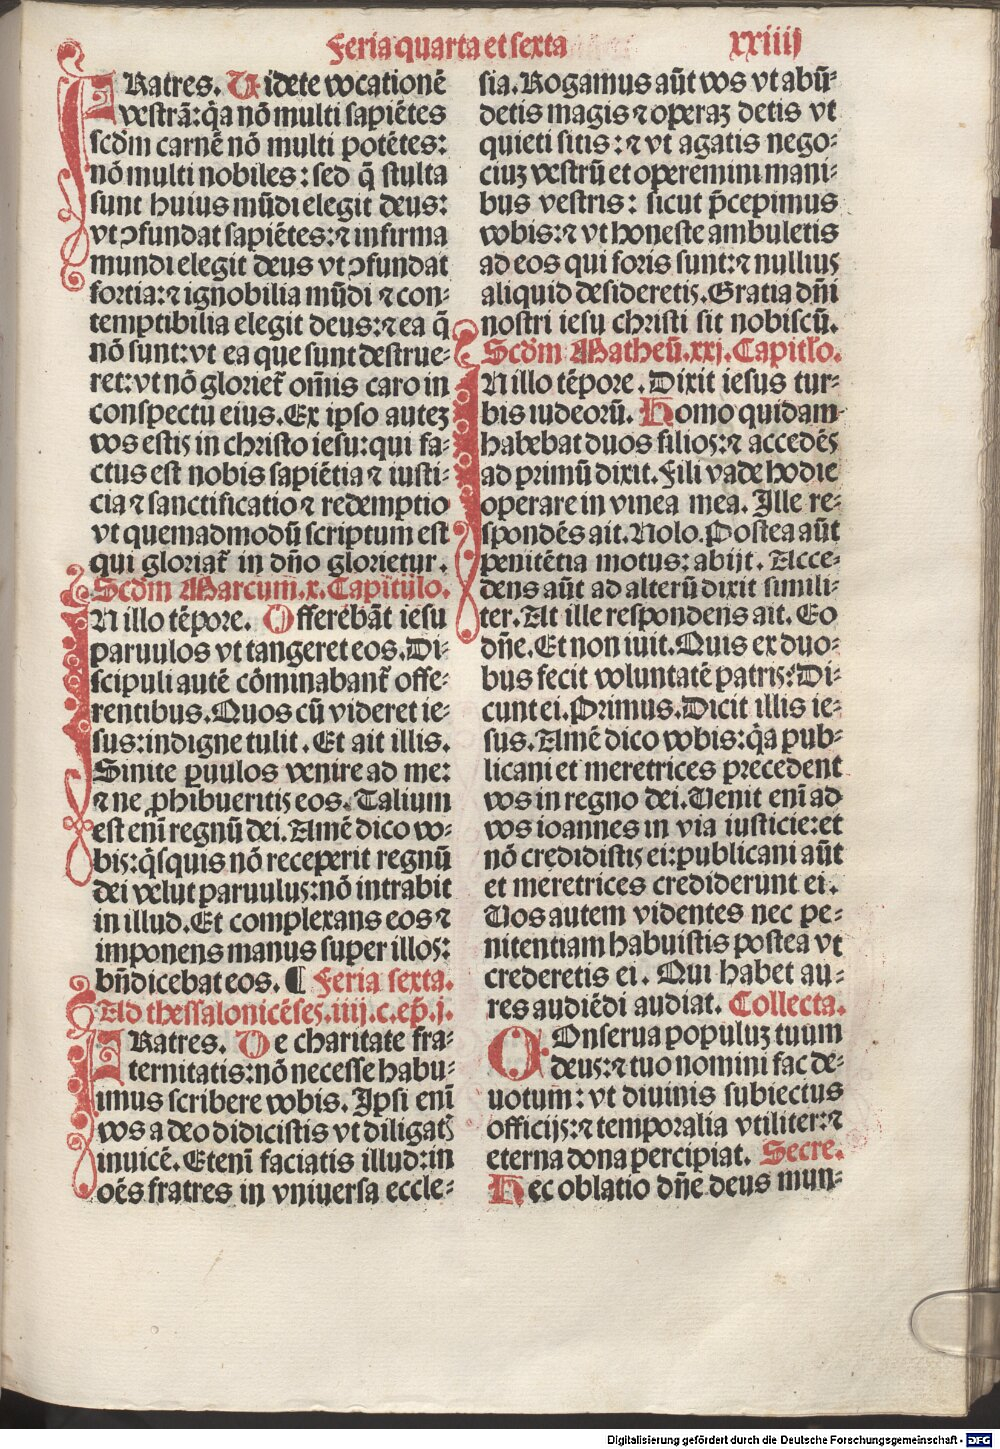 Feria quarta et sexta
xxiiij
FRatres. Uidete vocationē
vestrā: q̄a nō multi sapiētes
scd̄m carnē nō multi potētes:
nō multi nobiles: sed q̄ stulta
sunt huius mūdi elegit deus:
vt ꝯfundat sapiētes: ⁊ infirma
mundi elegit deus vt ꝯfundat
fortia: ⁊ ignobilia mūdi ⁊ con⸗
temptibilia elegit deus: ⁊ ea q̄
nō sunt: vt ea que sunt destrue⸗
ret: vt nō gloriet̄ om̄is caro in
conspectu eius. Ex ipso auteꝫ
vos estis in christo iesu: qui fa⸗
ctus est nobis sapiētia ⁊ iusti⸗
cia ⁊ sanctificatio ⁊ redemptio
vt quemadmodū scriptum est
qui gloriat̄ in dn̄o glorietur.
Scd̄m Marcum. x. Capitulo.
IN illo tēpore. Offerebāt iesu
paruulos vt tangeret eos. Di⸗
scipuli autē cōminabant̄ offe⸗
rentibus. Quos cū videret ie⸗
sus: indigne tulit. Et ait illis.
Sinite ꝑuulos venire ad me:
⁊ ne ꝓhibueritis eos. Talium
est enī regnū dei. Amē dico vo⸗
bis: q̄squis nō receperit regnū
dei velut paruulus: nō intrabit
in illud. Et complexans eos ⁊
imponens manus super illos:
bn̄dicebat eos. ¶ Feria sexta.
Ad thessalonicēses. iiij. c. ep̄. j.
FRatres. De charitate fra⸗
ternitatis: nō necesse habu⸗
imus scribere vobis. Ipsi enī
vos a deo didicistis vt diligatꝭ
inuicē. Etenī faciatis illud: in
oēs fratres in vniuersa eccle⸗
sia. Rogamus aūt vos vt abū⸗
detis magis ⁊ operaꝫ detis vt
quieti sitis: ⁊ vt agatis nego⸗
ciuꝫ vestrū et operemini mani⸗
bus vestris: sicut p̄cepimus
vobis: ⁊ vt honeste ambuletis
ad eos qui foris sunt: ⁊ nullius
aliquid desideretis. Gratia dn̄i
nostri iesu christi sit nobiscū.
Scd̄m Matheū. xxj. Capitl̄o.
IN illo tēpore. Dixit iesus tur⸗
bis iudeorū. Homo quidam
habebat duos filios: ⁊ accedēs
ad primū dixit. Fili vade hodie
operare in vinea mea. Ille re⸗
spondēs ait. Nolo. Postea aūt
penitētia motus: abijt. Acce⸗
dens aūt ad alterū dixit simili⸗
ter. At ille respondens ait. Eo
dn̄e. Et non iuit. Quis ex duo⸗
bus fecit voluntatē patris? Di⸗
cunt ei. Primus. Dicit illis ie⸗
sus. Amē dico vobis: q̄a pub⸗
licani et meretrices precedent
vos in regno dei. Uenit enī ad
vos ioannes in via iusticie: et
nō credidistis ei: publicani aūt
et meretrices crediderunt ei.
Uos autem videntes nec pe⸗
nitentiam habuistis postea vt
crederetis ei. Qui habet au⸗
res audiēdi audiat. Collecta.
COnserua populuꝫ tuum
deus: ⁊ tuo nomini fac de⸗
uotum: vt diuinis subiectus
officijs: ⁊ temporalia vtiliter: ⁊
eterna dona percipiat. Secre.
Hec oblatio dn̄e deus mun⸗
Digitalisierung gefördert durch die Deutsche Forschungsgemeinschaft - DFG